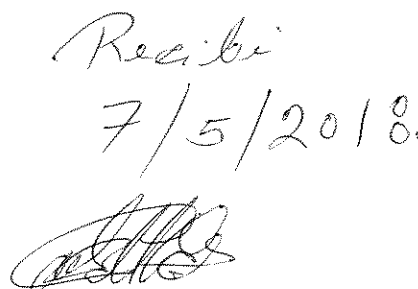 Recibi
7/5/2018.